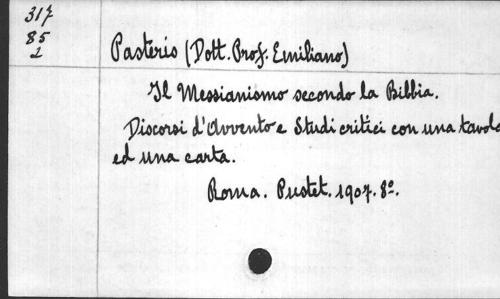 317
85
2
Pasteris (Dott. Prof. Emiliano)
Il Messianismo secondo la Bibbia.
Discorsi d'Avvento e Studi critici con una tavola
ed una carta.
Roma. Pustet. 1907. 8º.